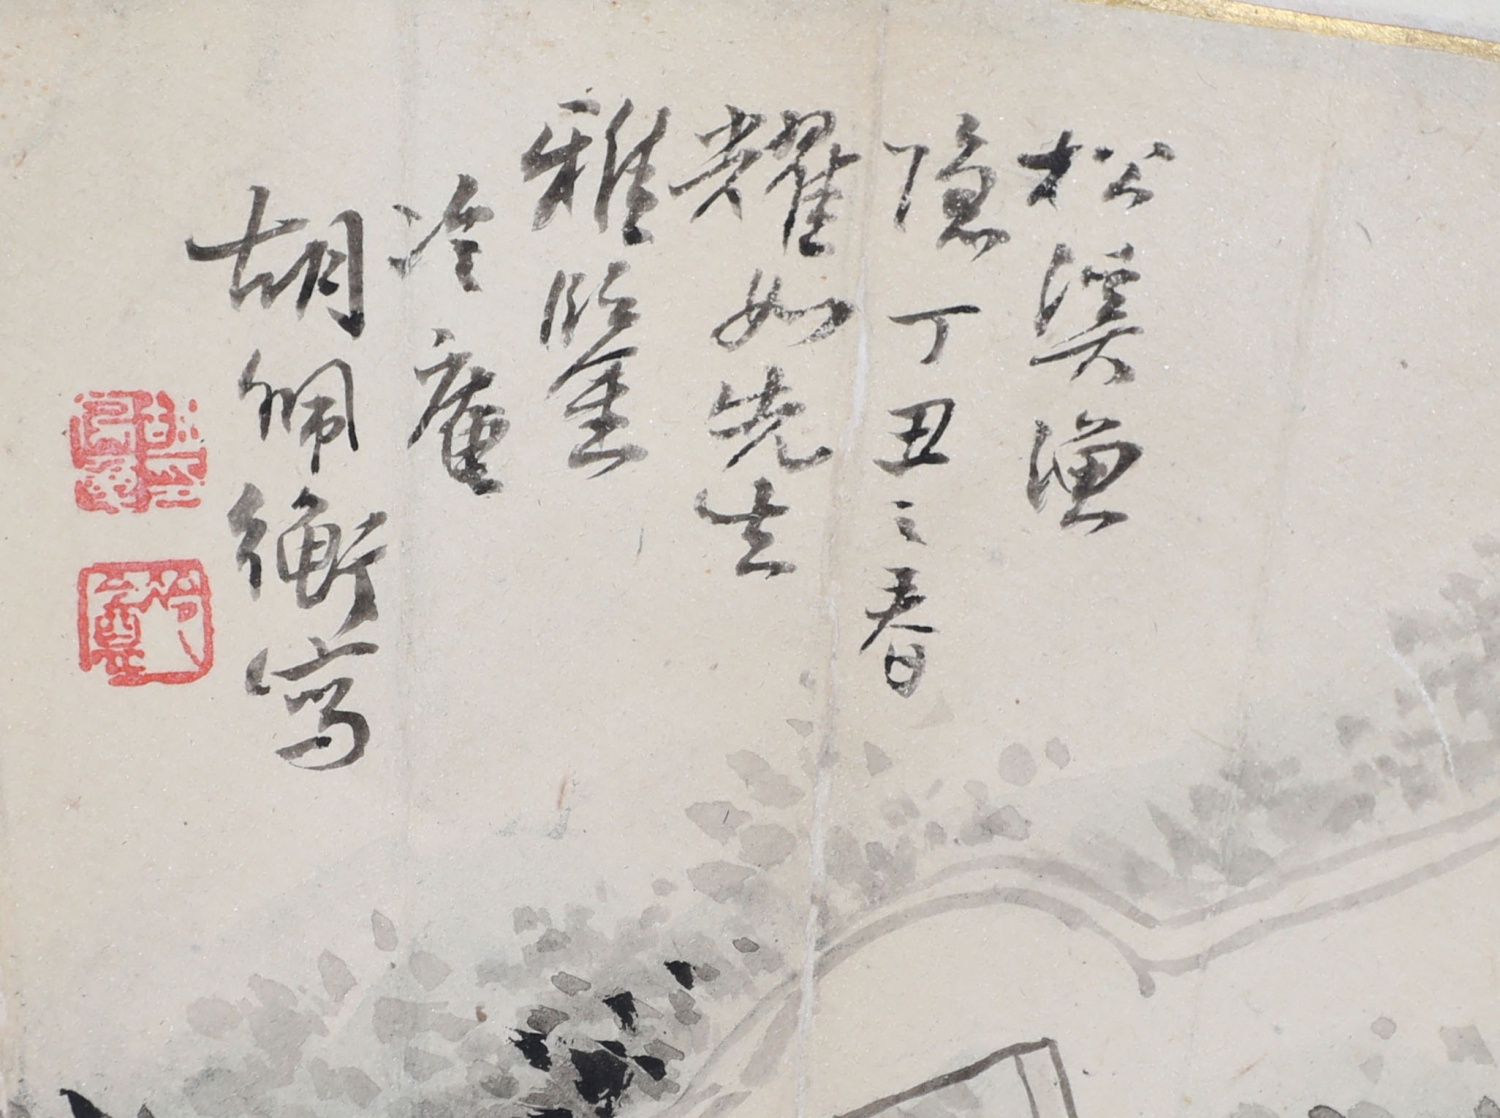 松溪漁
隐丁丑之春
耀如先生
雅鑒
冷庵
胡佩衡寫